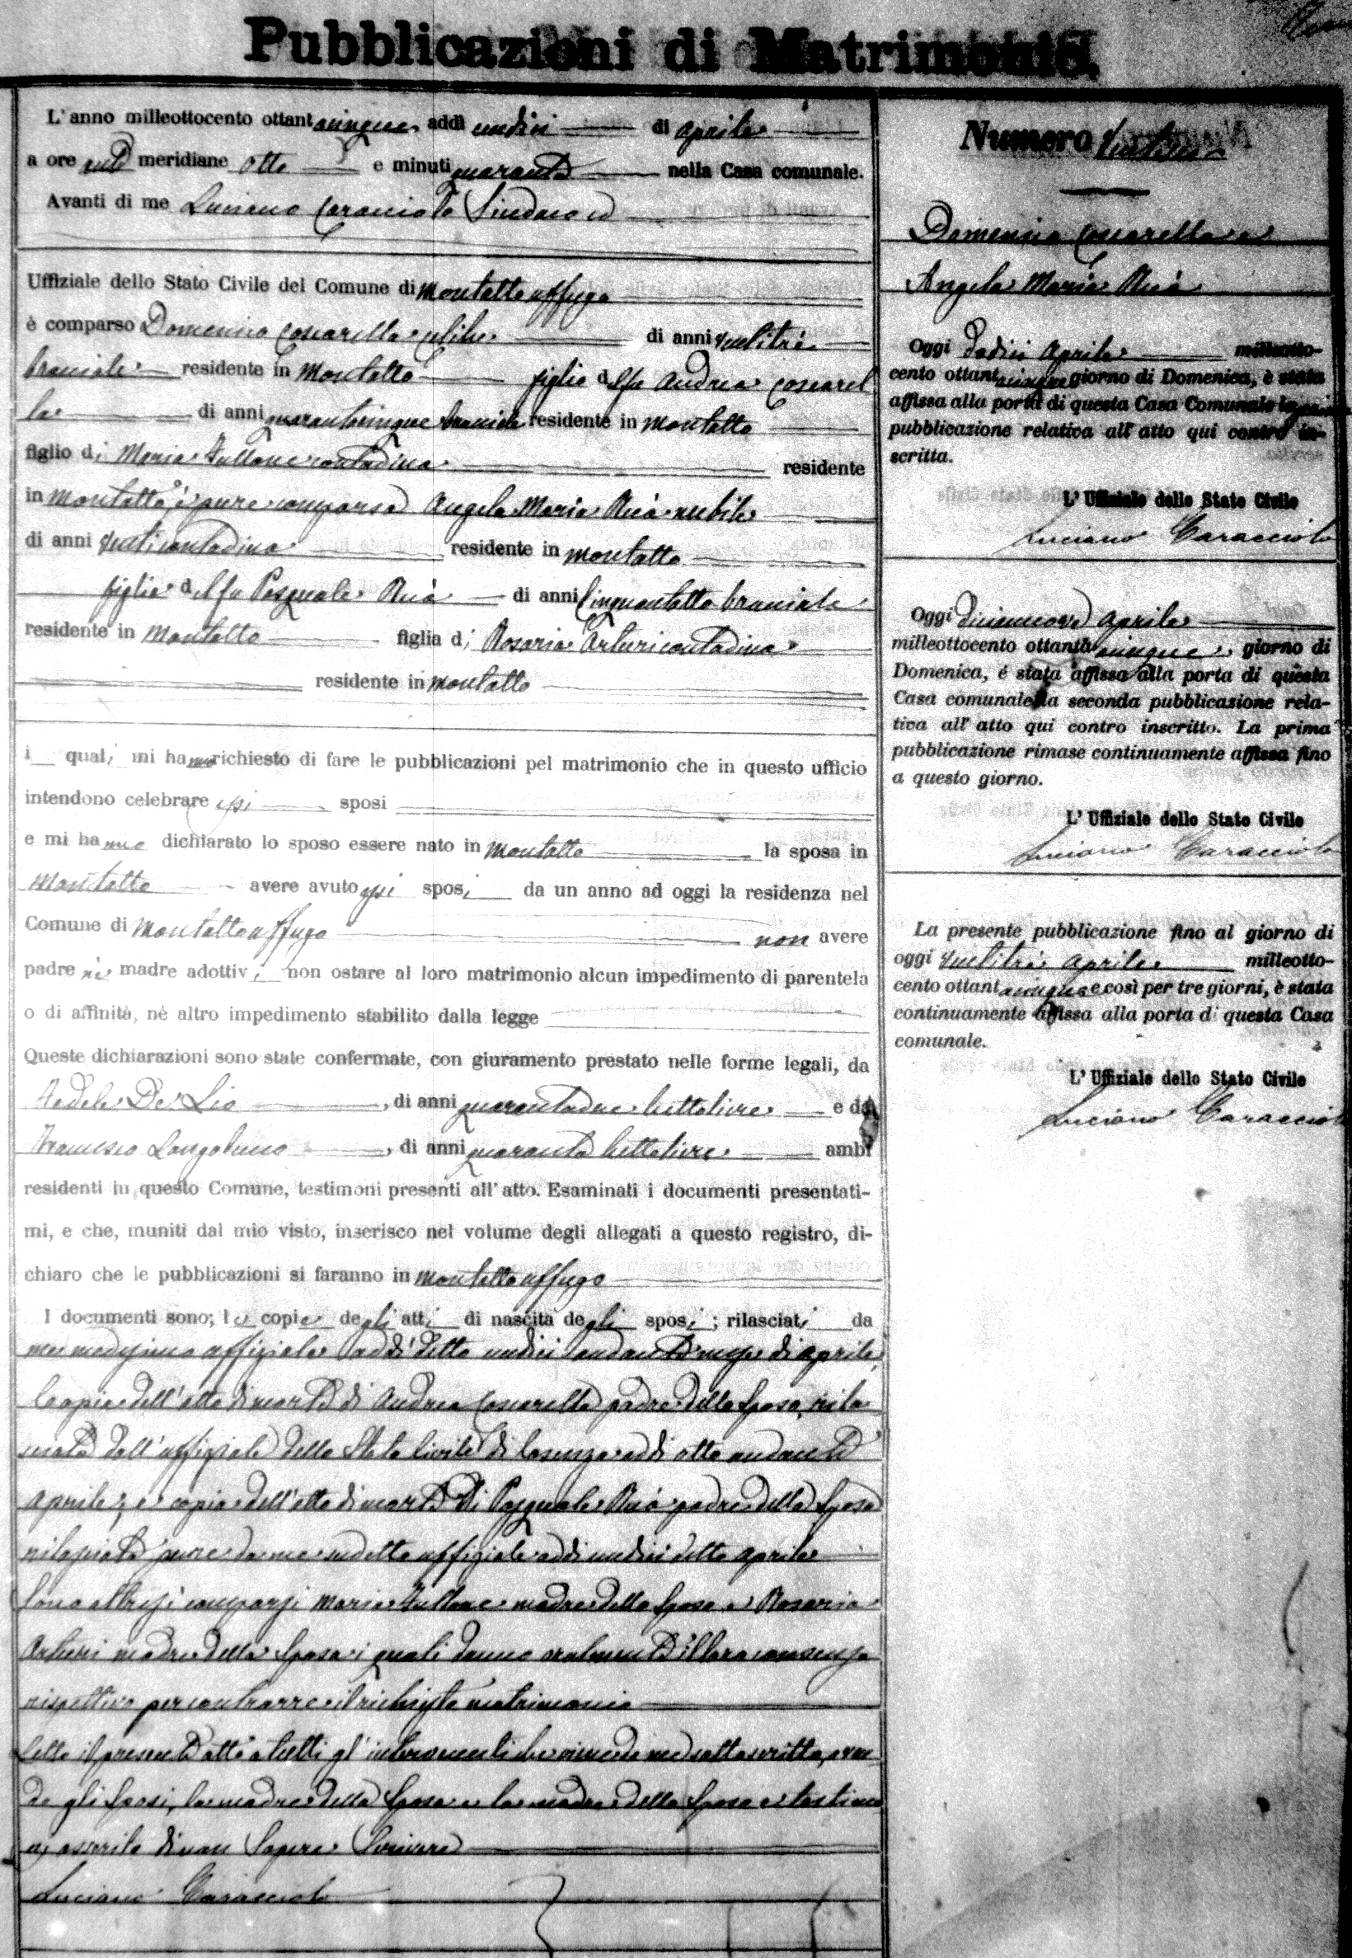 Pubblicazioni di Matrimonio.
L'anno milleottocento ottantacinque addì undici di Aprile
a ore ant meridiane otto e minuti quaranta nella Casa comunale.
Avanti di me Luciano Caracciolo Sindaco ed
Uffiziale dello Stato Civile del Comune di Montalto Uffugo
è comparso Domenico Coscarella celibe di anni ventitré
bracciale residente in Montalto figlio del fu Andrea Coscarel
la di anni quarantacinque bracciale residente in Montalto
figlio di Maria Fullone contadina residente
in Montalto è pure comparsa Angela Maria Ruà nubile
di anni venti contadina residente in Montalto
figlia del fu Pasquale Ruà di anni cinquantotto bracciale
residente in Montalto figlia di Rosaria Arturi contadina
residente in Montalto
i quali mi hanno richiesto di fare le pubblicazioni pel matrimonio che in questo ufficio
intendono celebrare essi sposi
e mi hanno dichiarato lo sposo essere nato in Montalto la sposa in
Montalto avere avuto essi sposi da un anno ad oggi la residenza nel
Comune di Montalto Uffugo non avere
padre nè madre adottivi non ostare al loro matrimonio alcun impedimento di parentela
o di affinità, nè altro impedimento stabilito dalla legge
Queste dichiarazioni sono state confermate, con giuramento prestato nelle forme legali, da
Fedele De Lio, di anni quarantadue bettoliere e da
Francesco Longobucco, di anni quaranta bettoliere ambi
residenti in questo Comune, testimoni presenti all'atto. Esaminati i documenti presentati-
mi, e che, muniti dal mio visto, inserisco nel volume degli allegati a questo registro, di-
chiaro che le pubblicazioni si faranno in Montalto Uffugo
I documenti sono; le copie degli atti di nascita degli sposi; rilasciati da
me medesimo uffiziale addì detto undici andante mese di Aprile
Copia dell'atto di morte di Andrea Coscarella padre dello sposo, rila
sciata dall'uffiziale dello Stato Civile di Cosenza addì otto andante
Aprile; e copia dell'atto di morte di Pasquale Ruà padre della sposa
rilasciata pure da me sudetto uffiziale addì undici detto Aprile
Sono altresì comparsi Maria Fullone madre dello sposo e Rosaria
Arturi madre della sposa i quali danno oralmente il loro consenso
rispettivo per contrarre il richiesto matrimonio
Letto il presente atto a tutti gl'intervenuti che viene da me sottoscritto, aven
do gli sposi, la madre dello sposo e la madre della sposa e testimo
ni asserito di non sapere scrivere
Luciano Caracciolo
Numero
Domenico Coscarella e
Angela Maria Ruà
Oggi dodici Aprile milleotto-
cento ottantacinque giorno di Domenica, è stata
affissa alla porta di questa Casa Comunale la prima
pubblicazione relativa all'atto qui contro in-
scritta.
L'Uffiziale dello Stato Civile
Luciano Caracciolo
Oggi diciannove Aprile
milleottocento ottantacinque giorno di
Domenica, é stata affissa alla porta di questa
Casa comunale la seconda pubblicazione rela-
tiva all'atto qui contro inscritto. La prima
pubblicazione rimase continuamente affissa fino
a questo giorno.
L'Uffiziale dello Stato Civile
Luciano Caracciolo
La presente pubblicazione fino al giorno di
oggi ventitrè Aprile milleotto-
cento ottantacinque e così per tre giorni, è stata
continuamente affissa alla porta di questa Casa
comunale.
L'Uffiziale dello Stato Civile
Luciano Caracciolo